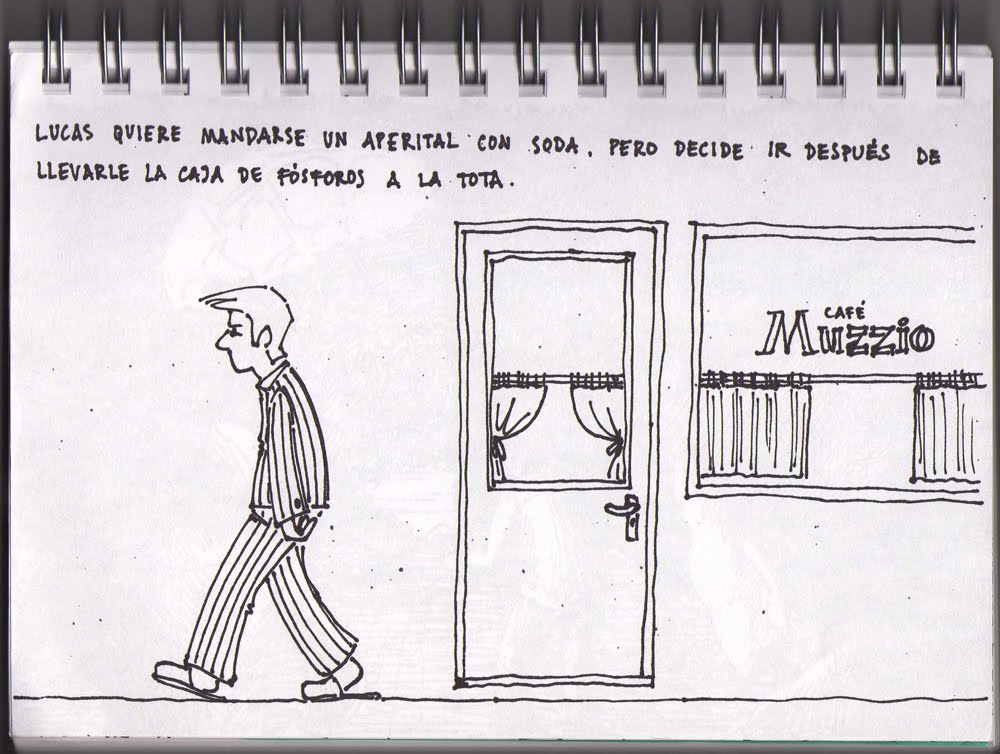 LUCAS QUIERE MANDARSE UN APERITAL CON SODA, PERO DECIDE IR DESPUÉS DE
LLEVARLE LA CAJA DE FÓSFOROS A LA TOTA.
CAFÉ
Muzzio